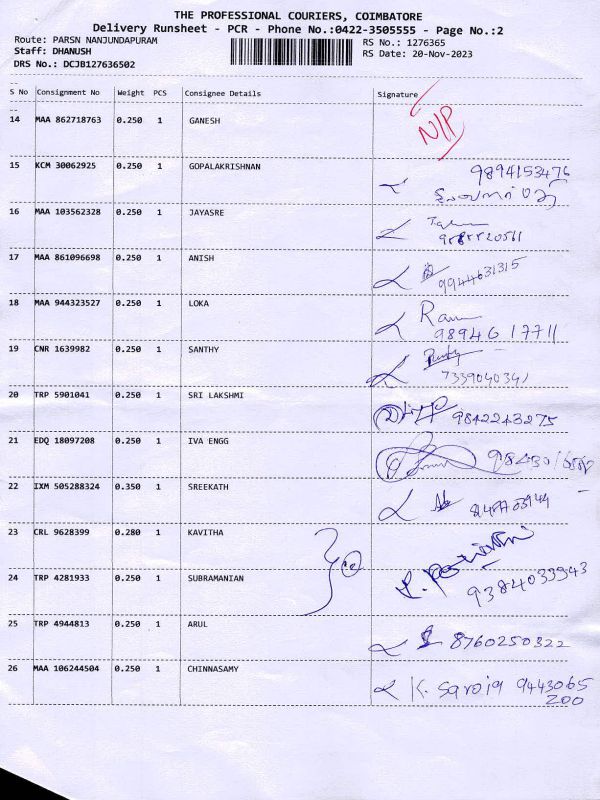 THE PROFESSIONAL COURIERS, COIMBATORE
Delivery Runsheet - PCR - Phone No.:0422-3505555 - Page No.:2
Route: PARSN NANJUNDAPURAM
RS No.: 1276365
Staff: DHANUSH
RS Date: 20-Nov-2023
DRS No.: DCJB127636502
S No Consignment No Weight PCS Consignee Details Signature
14 MAA 862718763 0.250 1 GANESH N/P
15 KCM 30062925 0.250 1 GOPALAKRISHNAN 9894153476
16 MAA 103562328 0.250 1 JAYASRE
17 MAA 861096698 0.250 1 ANISH 9944631315
18 MAA 944323527 0.250 1 LOKA Ram
9894617711
19 CNR 1639982 0.250 1 SANTHY
7339040341
20 TRP 5901041 0.250 1 SRI LAKSHMI 9842243275
21 EDQ 18097208 0.250 1 IVA ENGG
22 IXM 505288324 0.350 1 SREEKATH
23 CRL 9628399 0.280 1 KAVITHA
24 TRP 4281933 0.250 1 SUBRAMANIAN 9384033943
25 TRP 4944813 0.250 1 ARUL 8760250322
26 MAA 106244504 0.250 1 CHINNASAMY K. Saroja 9443065
200